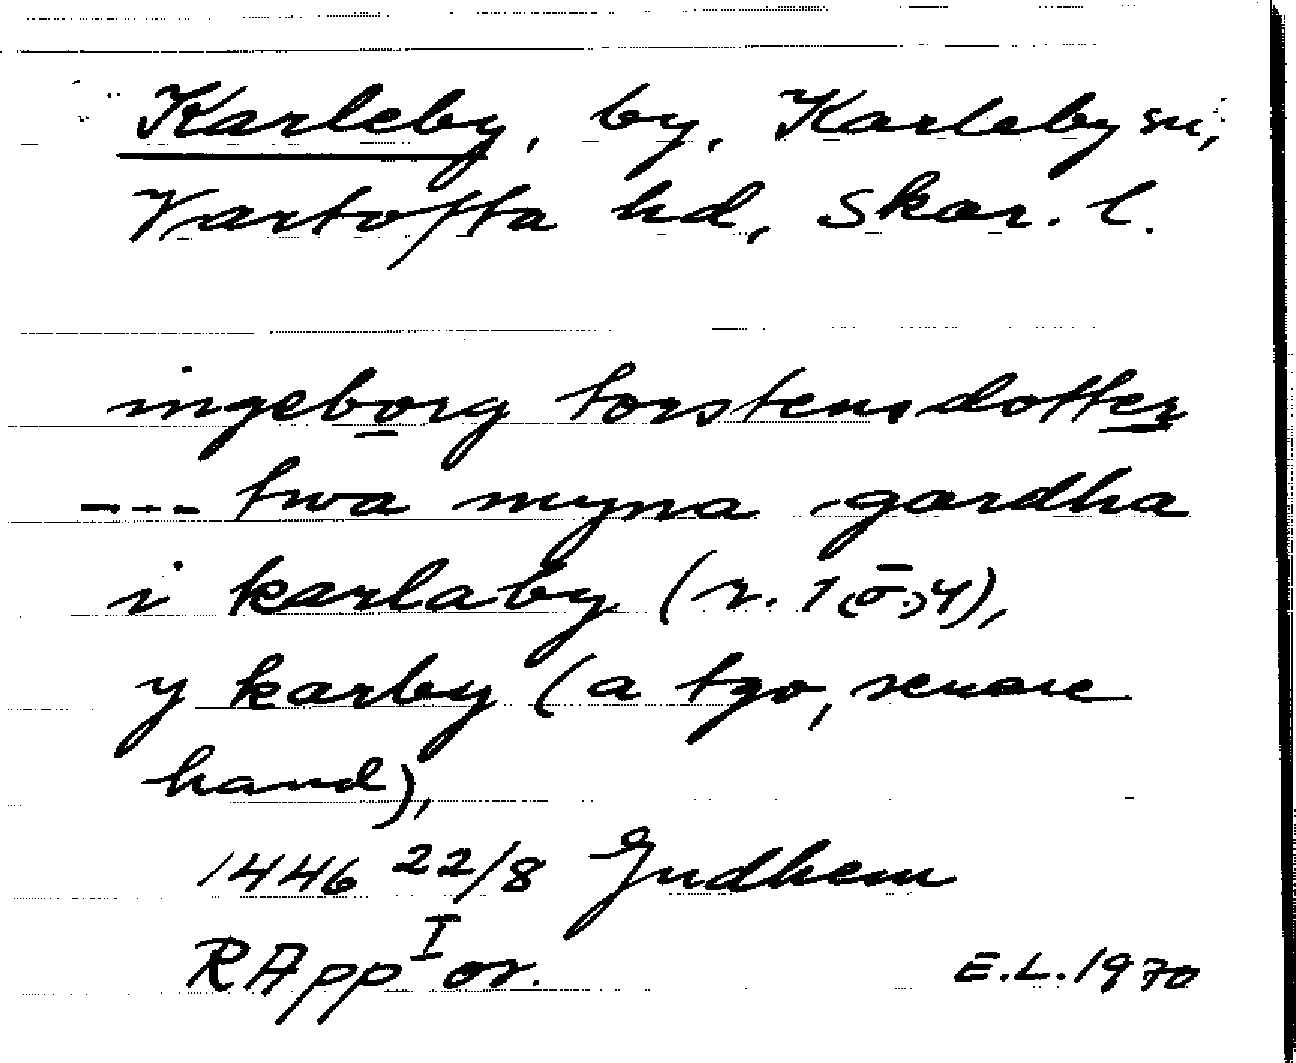 Karleby, by, Karleby sn,
Vartofta hd, Skar. l.
ingeborg torstensdotter
--- twa myna gardha
i karlaby (r. 1 (ō.) 4),
y karby (a tgo, senare
hand),
1446 22/8 Gudhem
RApp I or.
E.L. 1970